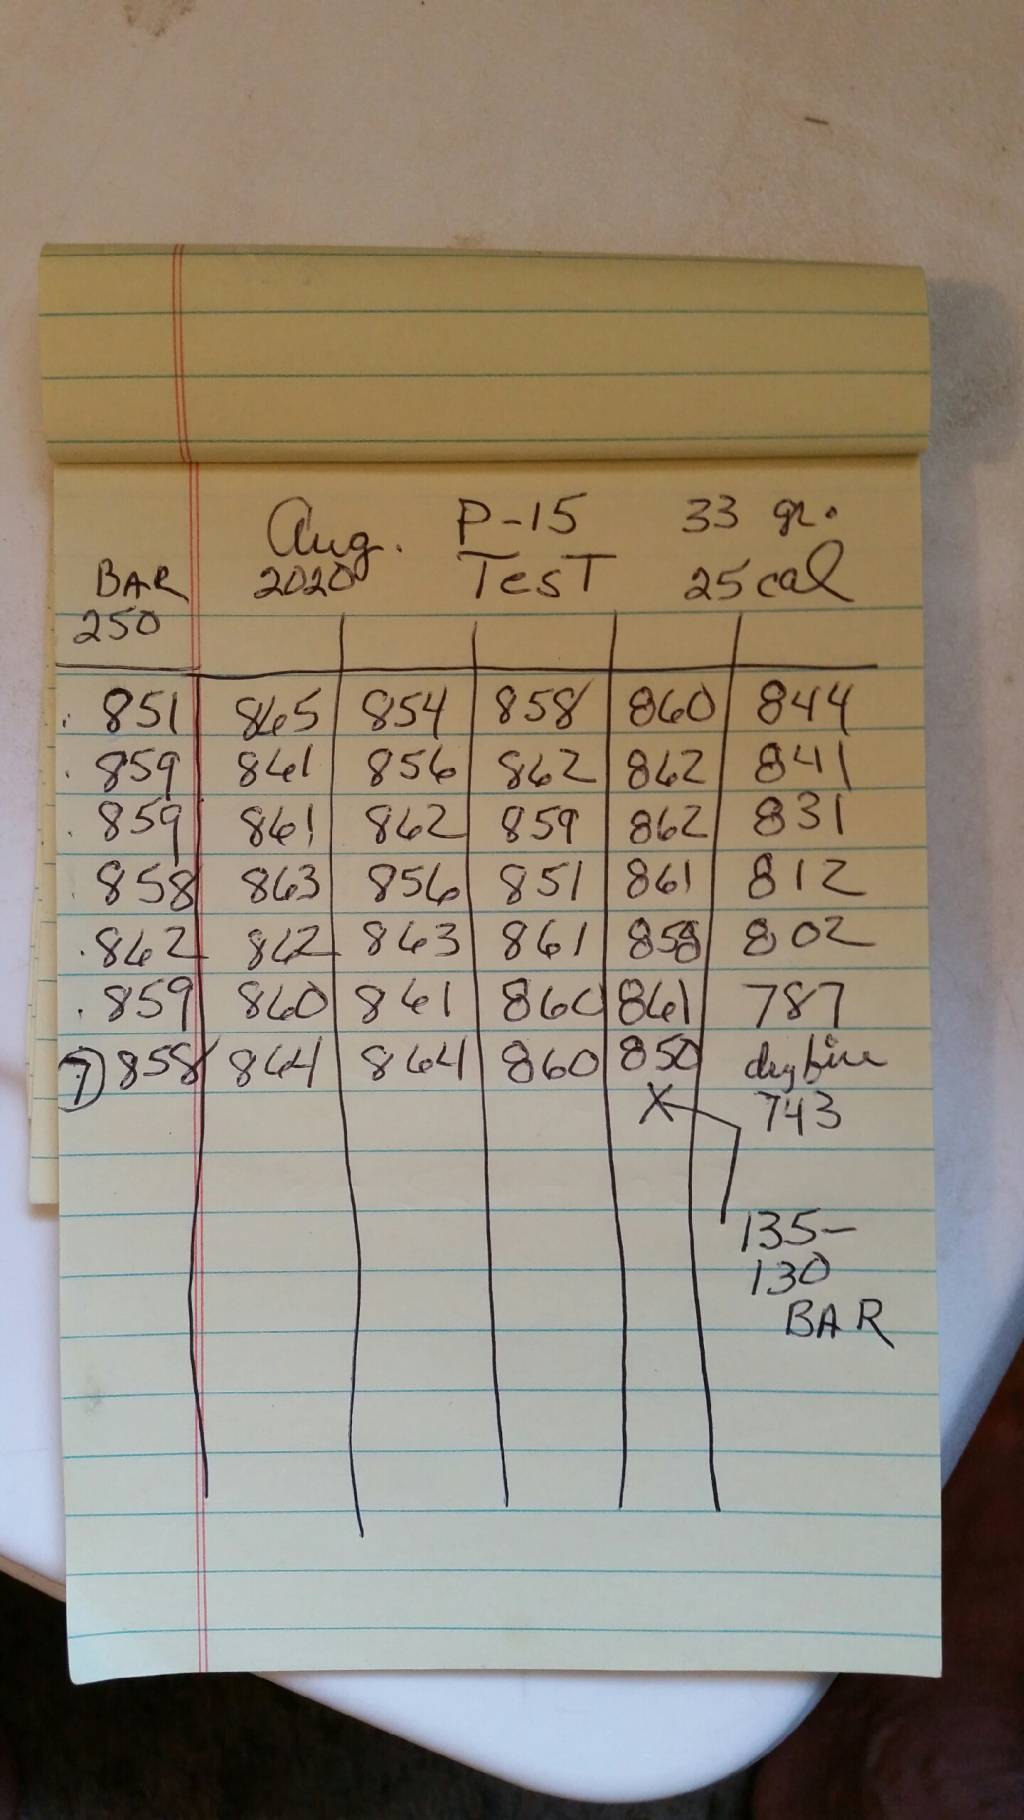 Aug. P-15 33 gr.
BAR 2020 TesT 25 cal
250
. 851 865 854 858 860 844
. 859 861 856 862 862 841
. 859 861 862 859 862 831
. 858 863 856 851 861 812
. 862 862 863 861 858 802
. 859 860 861 860 861 787
7 858 864 864 860 850 dry fire
X 743
135-
130
BAR